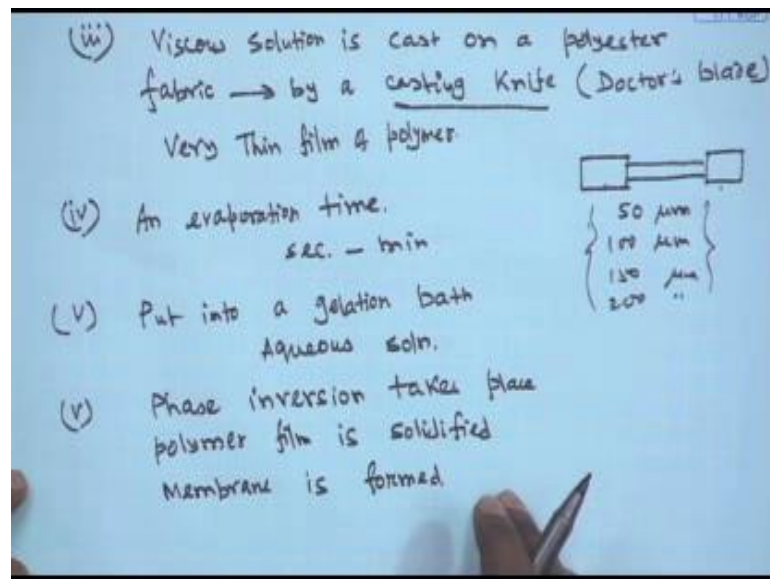 (iii) Viscous solution is cast on a polyester
fabric → by a casting Knife (Doctor's blade)
Very Thin film of polymer.
(iv) An evaporation time.
sec. - min
(v) Put into a gelation bath
Aqueous soln.
(v) Phase inversion takes place
polymer film is solidified
Membrane is formed
50 μm
100 μm
150 μm
200 "